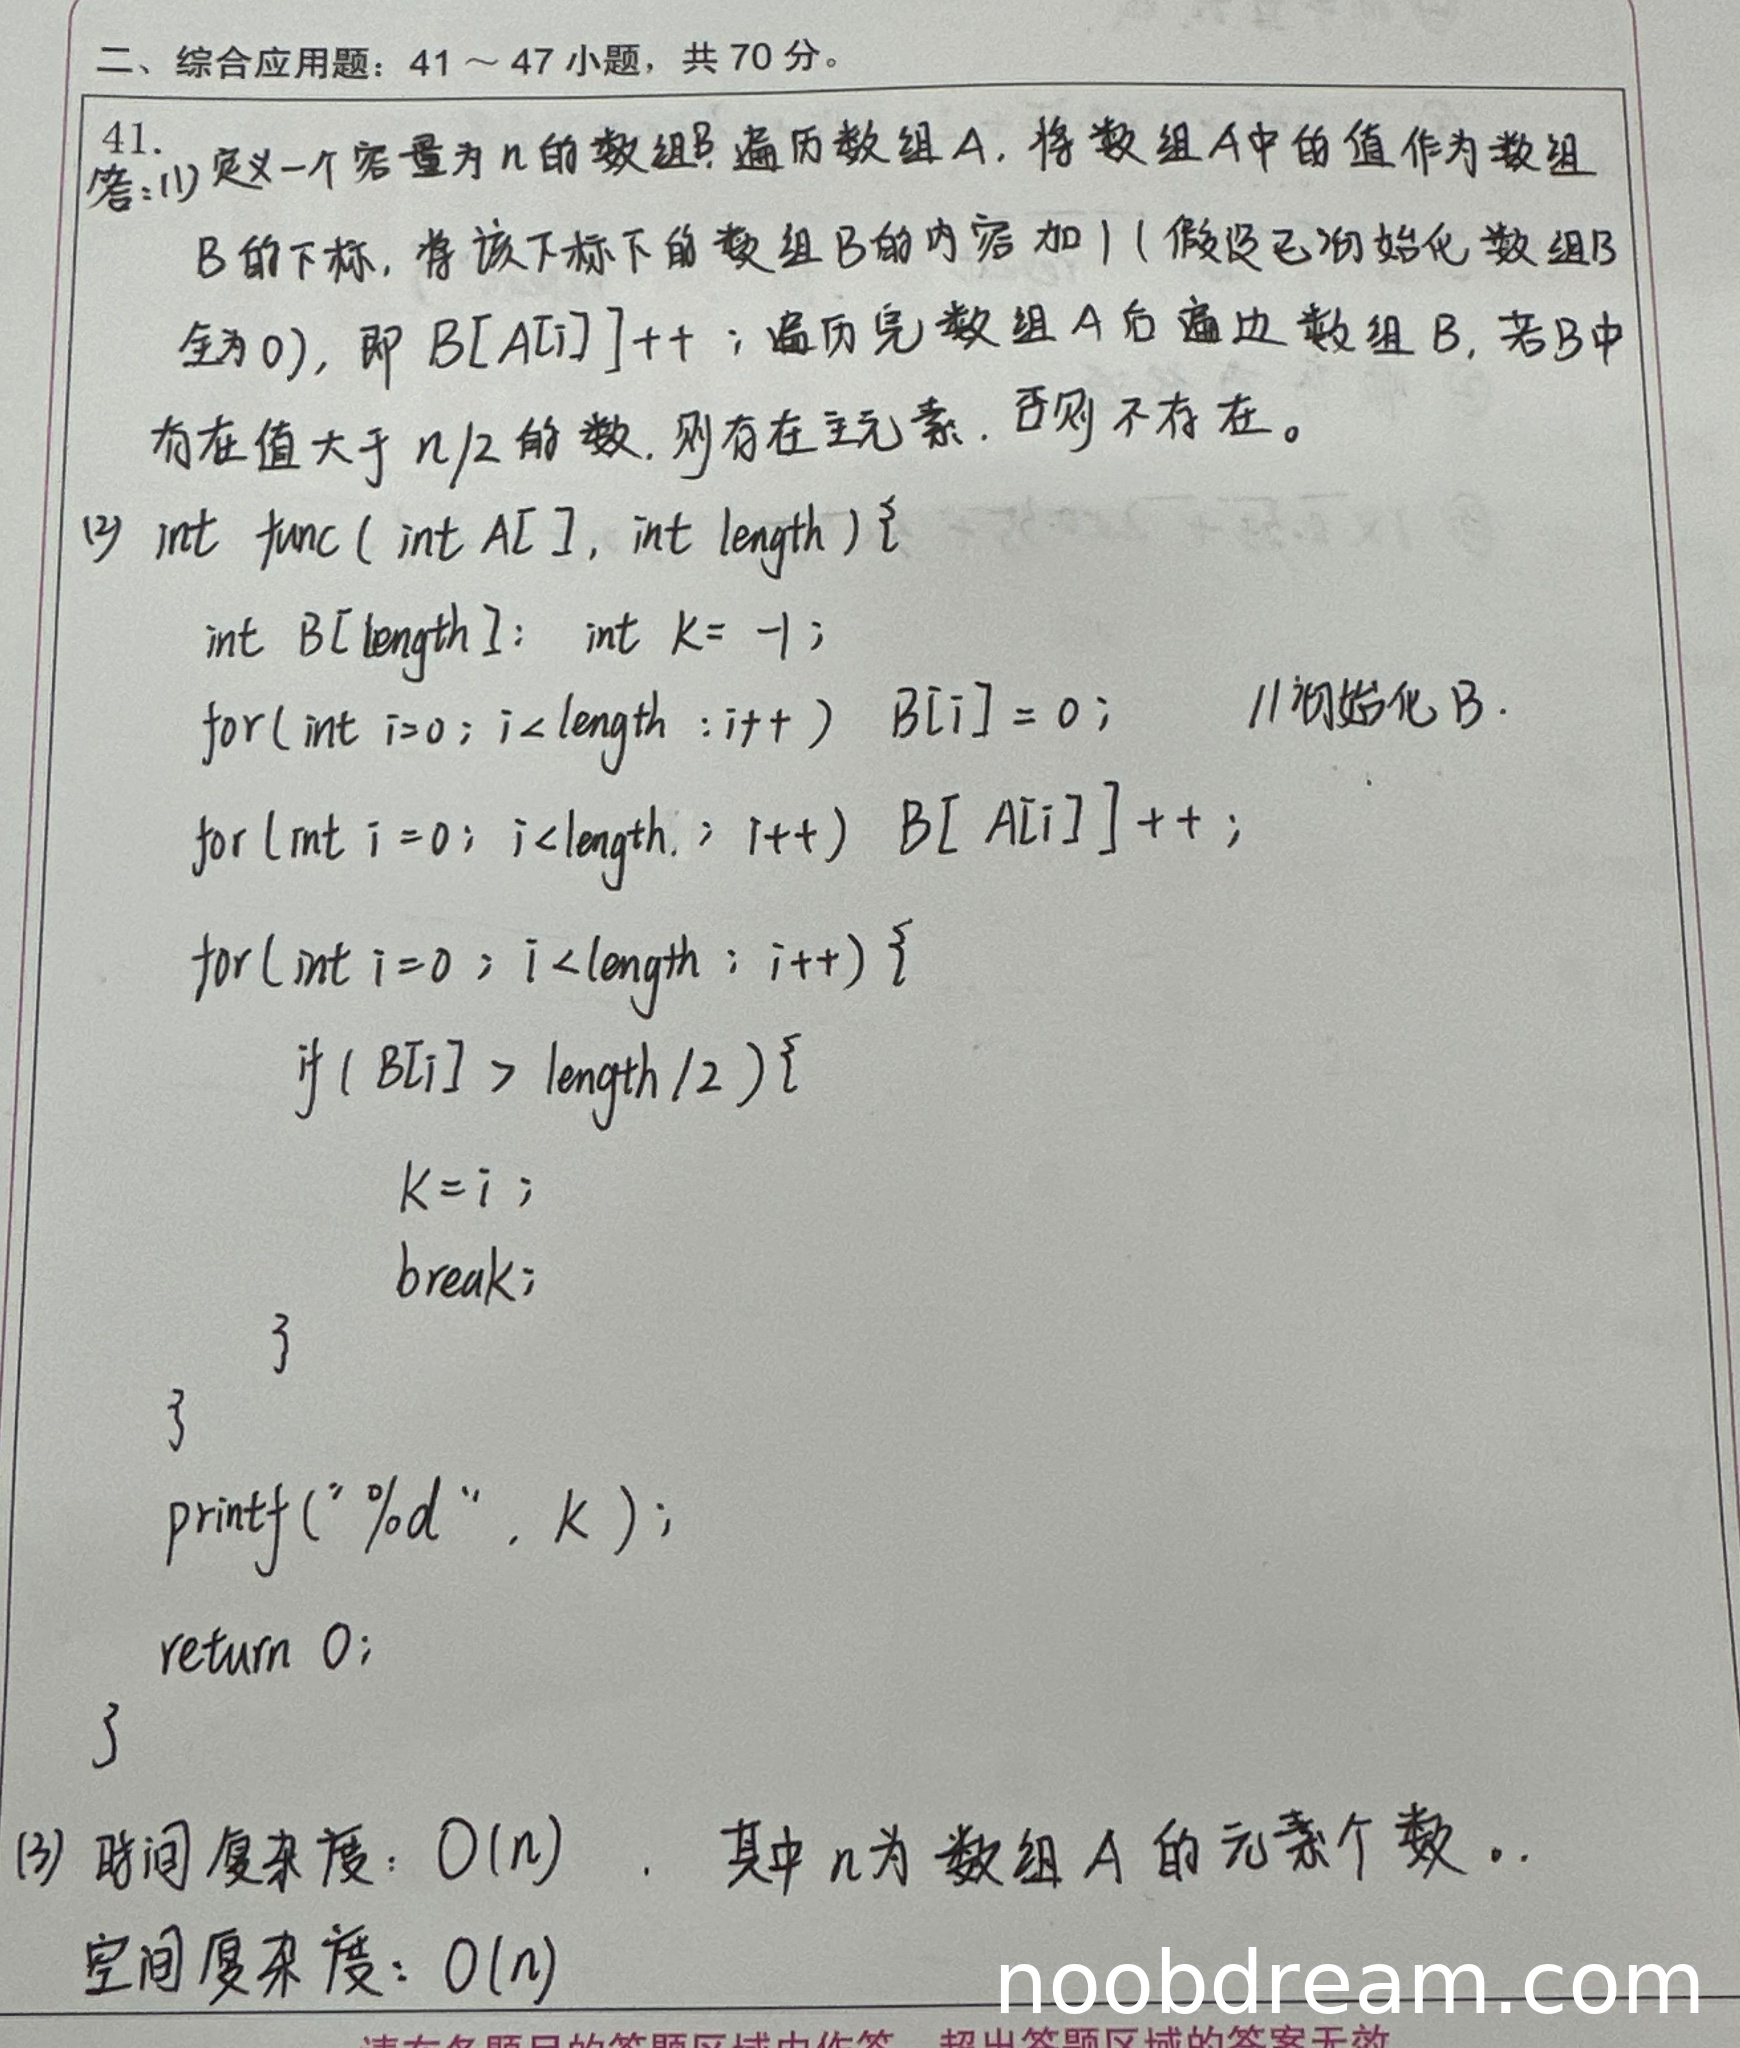 二、综合应用题：41～47小题，共70分。
41.
答：(1)定义一个容量为n的数组B，遍历数组A，将数组A中的值作为数组
B的下标，将该下标下的数组B的内容加1（假设已初始化数组B
全为0），即 B[A[i]]++；遍历完数组A后遍边数组B，若B中
存在值大于n/2的数，则存在主元素，否则不存在。
(2) int func(int A[], int length){
int B[length]; int k= -1;
for(int i=0; i<length ; i++) B[i]=0; //初始化B.
for(int i=0; i<length ; i++) B[A[i]]++;
for(int i=0; i<length; i++){
if(B[i] > length/2){
k=i;
break;
}
}
printf("%d", k);
return 0;
}
(3) 时间复杂度：O(n) . 其中n为数组A的元素个数..
空间复杂度：O(n)
noobdream.com
请在各题目的答题区域内作答，超出答题区域的答案无效